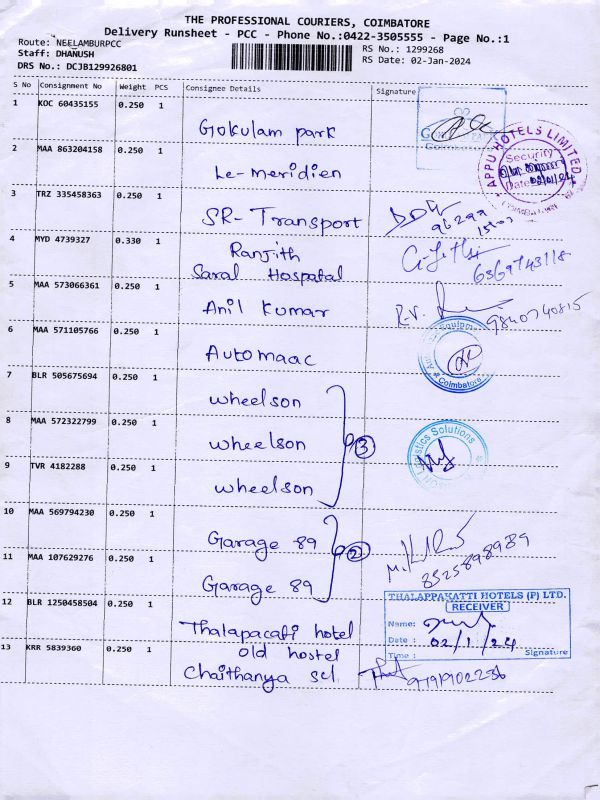 THE PROFESSIONAL COURIERS, COIMBATORE
Delivery Runsheet - PCC - Phone No.:0422-3505555 - Page No.:1
Route: NEELAMBURPCC
RS No.: 1299268
Staff: DHANUSH
RS Date: 02-Jan-2024
DRS No.: DCJB129926801
S No Consignment No Weight PCS Consignee Details Signature
1 KOC 60435155 0.250 1 Gokulam park
Coimbatore
2 MAA 863204158 0.250 1 Le-meridien
APPU HOTELS LIMITED
Security
Date
3 TRZ 335458363 0.250 1 SR- Transport
96299
4 MYD 4739327 0.330 1 Ranjith
Saral Hospatal
6369743118
5 MAA 573066361 0.250 1 Anil Kumar
R.V.
9840740815
6 MAA 571105766 0.250 1 Automaac
Coimbatore
7 BLR 505675694 0.250 1 wheelson
8 MAA 572322799 0.250 1 wheelson
3
Logistics Solutions
9 TVR 4182288 0.250 1 wheelson
10 MAA 569794230 0.250 1 Garage 89
2
8525898989
11 MAA 107629276 0.250 1 Garage 89
12 BLR 1250458504 0.250 1 Thalapacati hotel
THALAPPAKATTI HOTELS (P) LTD.
RECEIVER
Name:
Date : 02/1/24
Time : Signature
13 KRR 5839360 0.250 1 old hostel
Chaithanya scl
9791902236